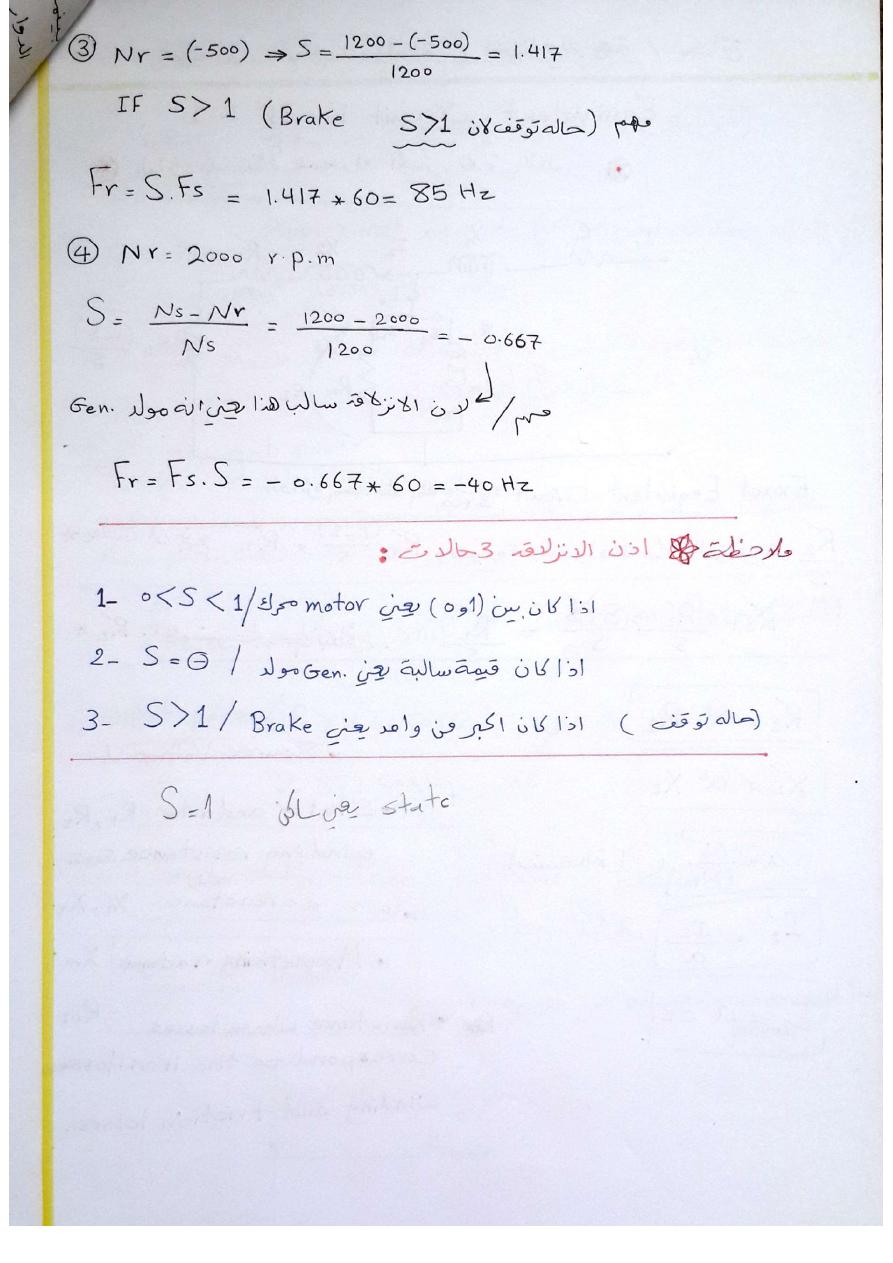 ③ Nr = (-500) ⇒ S = \frac{1200 - (-500)}{1200} = 1.417
IF S>1 (Brake حاله توقف لان S>1) مهم
Fr = S.Fs = 1.417 * 60 = 85 Hz
④ Nr = 2000 r.p.m
S = \frac{Ns - Nr}{Ns} = \frac{1200 - 2000}{1200} = - 0.667
مهم/ لان الانزلاقه سالب هذا يعني انه مولد Gen.
Fr = Fs.S = - 0.667 * 60 = -40 Hz
ملاحظة اذن الانزلاقه 3 حالات :
1- 0<S<1 / اذا كان بين (1و0) يعني motor محرك
2- S = ⊖ / اذا كان قيمة سالبة يعني Gen. مولد
3- S>1 / اذا كان اكبر من واحد يعني Brake (حاله توقف)
S=1 يعني ساكن static